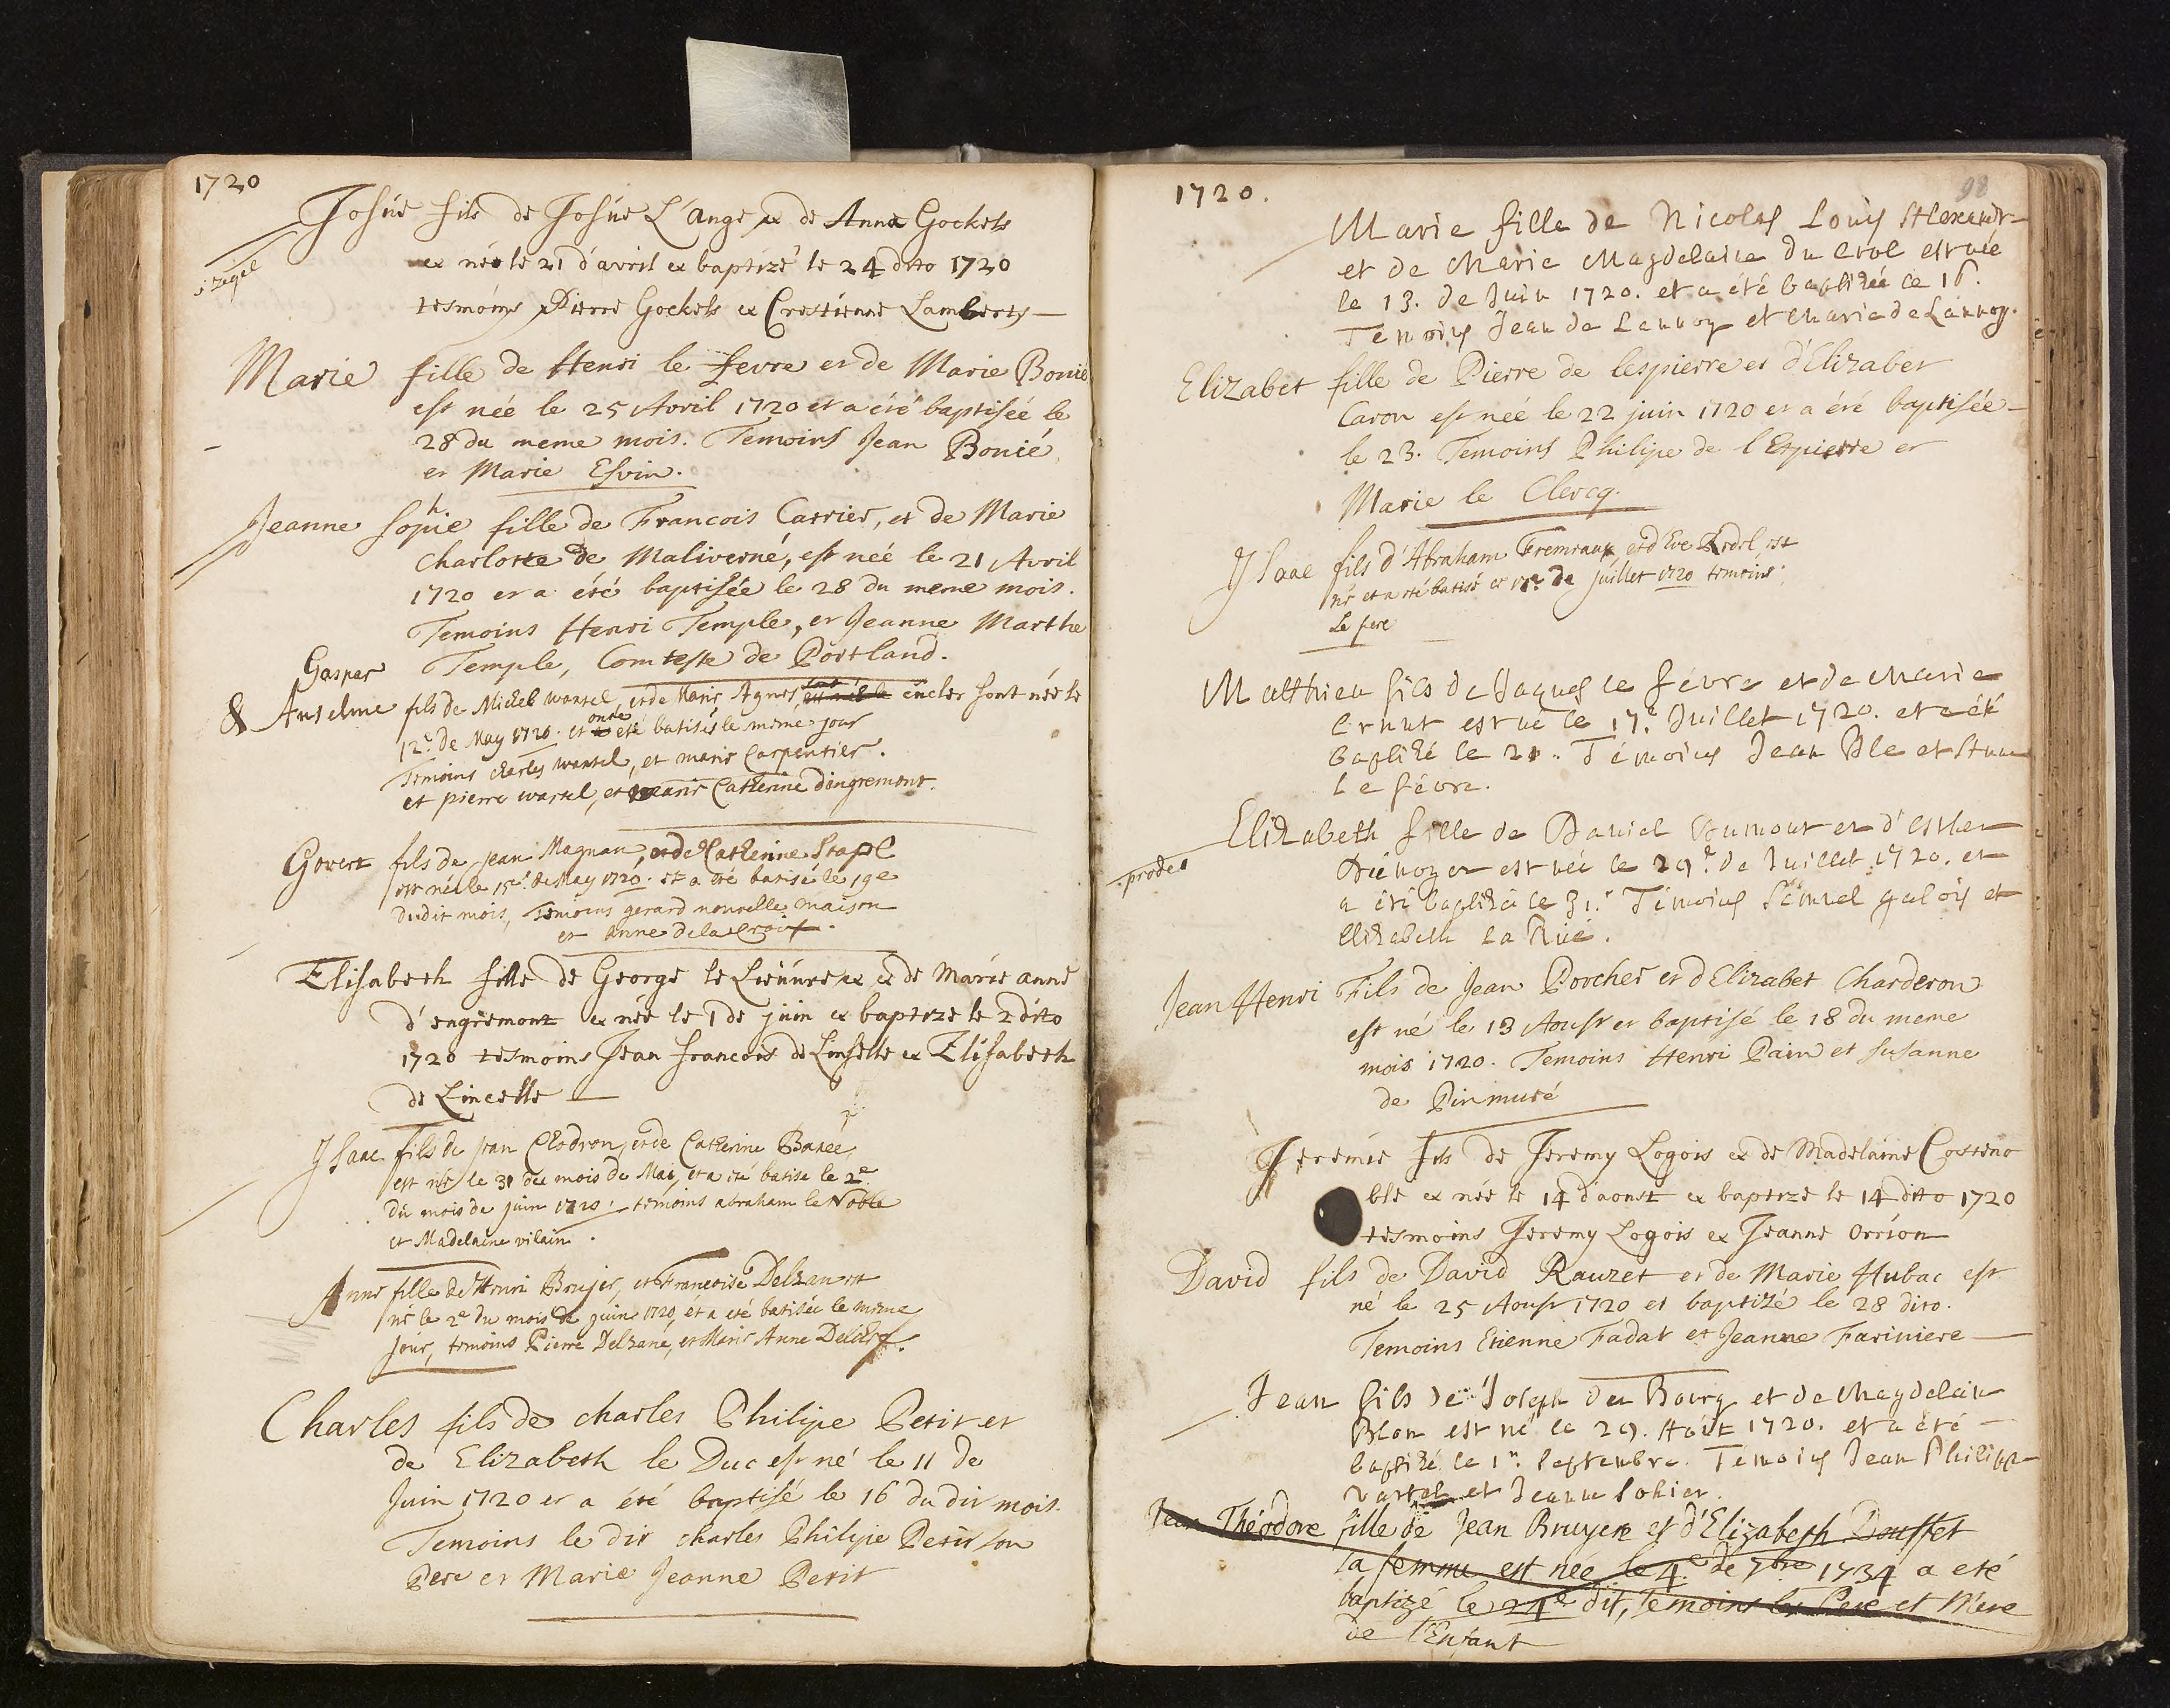 1720
Josúe fils de Josúe L'ange et de Anna Gockels
et née le 21 d'avril et baptizé le 24 dito 1720
tesmoins Pierre Gockels et Crestienne Lamberts
Marie fille de Henri le fevre et de Marie Bonié
est née le 25 Avril 1720 et a été baptisée le
28 du meme mois. Temoins Jean Bonié
et Marie Esvin.
Jeanne Sophie fille de Francois Carrier, et de Marie
Charlotte de Maliverné, est née le 21 Avril
1720 et a été baptisée le 28 du meme mois.
Temoins Henri Temple, et Jeanne Marthe
Temple, Comtesse de Portland.
Gaspar
& Anselme fils de Michel wartel, et de Marie Agnes encler sont née le
12e. de May 1720. et onte eté batisés le meme jour
Temoins charles wartel, et marie Carpentier.
et pierre wartel, et marie Catherine dingremont.
Govert fils de jean Magnan, et de Catherine Stapel
est née le 15e. de May 1720. et a eté batisé le 19e
dudit mois, Temoins gerard nouvelle maison
et anne de la Croix.
Elisabeth fille de George le Lieúvre et de Marie anne
d'engremont et née le 1 de juin et baptize le 2 dito
1720 tesmoins Jean francois de Linselle et Elisabeth
de Lincelle
Ysaac fils de jean Clodron, et de Catherine Banée,
est né le 31 du mois de Mai, et a eté batisé le 2e.
du mois de juin 1720. temoins abraham le Noble
et Madelaine vilain.
Anne fille de Henri Brujer, et Francoise Delzan est
né le 2e du mois de juin 1720, et a eté batisée le meme
jour, temoins Pierre Delzané, et Marie Anne
Charles fils de charles Philipe Petit et
de Elizabeth le Duc est né le 11 de
Juin 1720 et a été baptisé le 16 du dit mois.
Temoins le dit charles Philipe Petit son
Pere et Marie Jeanne Petit
1720.
98
Marie fille de Nicolas Louis Alexandre
et de Marie Magdelaine du Crol est née
le 13. de Juin 1720. et a été baptizée le 16.
Temoins Jean de Lannoy et Marie de Lannoy.
Elizabet fille de Pierre de lespierre et d'Elizabet
Caron est née le 22 juin 1720 et a été baptisée
le 23. Temoins Philipe de l'Espierre et
Marie le Clercq.
Ysaac fils d'Abraham Fremeaux, et d'Eve est
né et a eté batisé de juillet 1720 temoins
Le pere
Matthieu fils de Jaques le févre et de Marie
Ernut est né le 17e. Juillet 1720. et a été
baptizé le 21. Témoins Jean Ble et Anne
le févre.
prodeo
Elizabeth fille de Daniel Dumont et d'Esther
est née le 29e. de Juillet 1720. et
a été baptizée le 31. Témoins Sámuel galois et
Elizabeth la Rüe.
Jean Henri Fils de Jean Porcher et d'Elizabet Charderon
est né le 13 Aoust et baptisé le 18 du meme
mois 1720. Temoins Henri Pain et Susanne
de Pinmuré
Jeremie fils de Jeremy Logois et de Madelaine Costeno
ble et née le 14 d'aoust et baptize le 14 dito 1720
tesmoins Jeremy Logois et Jeanne Orrion
David fils de David Rauzet et de Marie Hubac est
né le 25 Aoust 1720 et baptizé le 28 dito.
Temoins Etienne Fadat et Jeanne Fariniere
Jean fils de Joseph du Bourg et de Magdelain
Blon est né le 29. Août 1720. et a été
baptizé le 1r. Septembre. Témoins Jean Philippe
Vartel et Jeanne Sohier.
Jean Théodore fille de Jean Bruyere et d'Elizabeth Douffet
sa femme est nee le 4e de 7bre 1734 a eté
baptizé le dit, Temoins les Pere et Mere
de l'Enfant